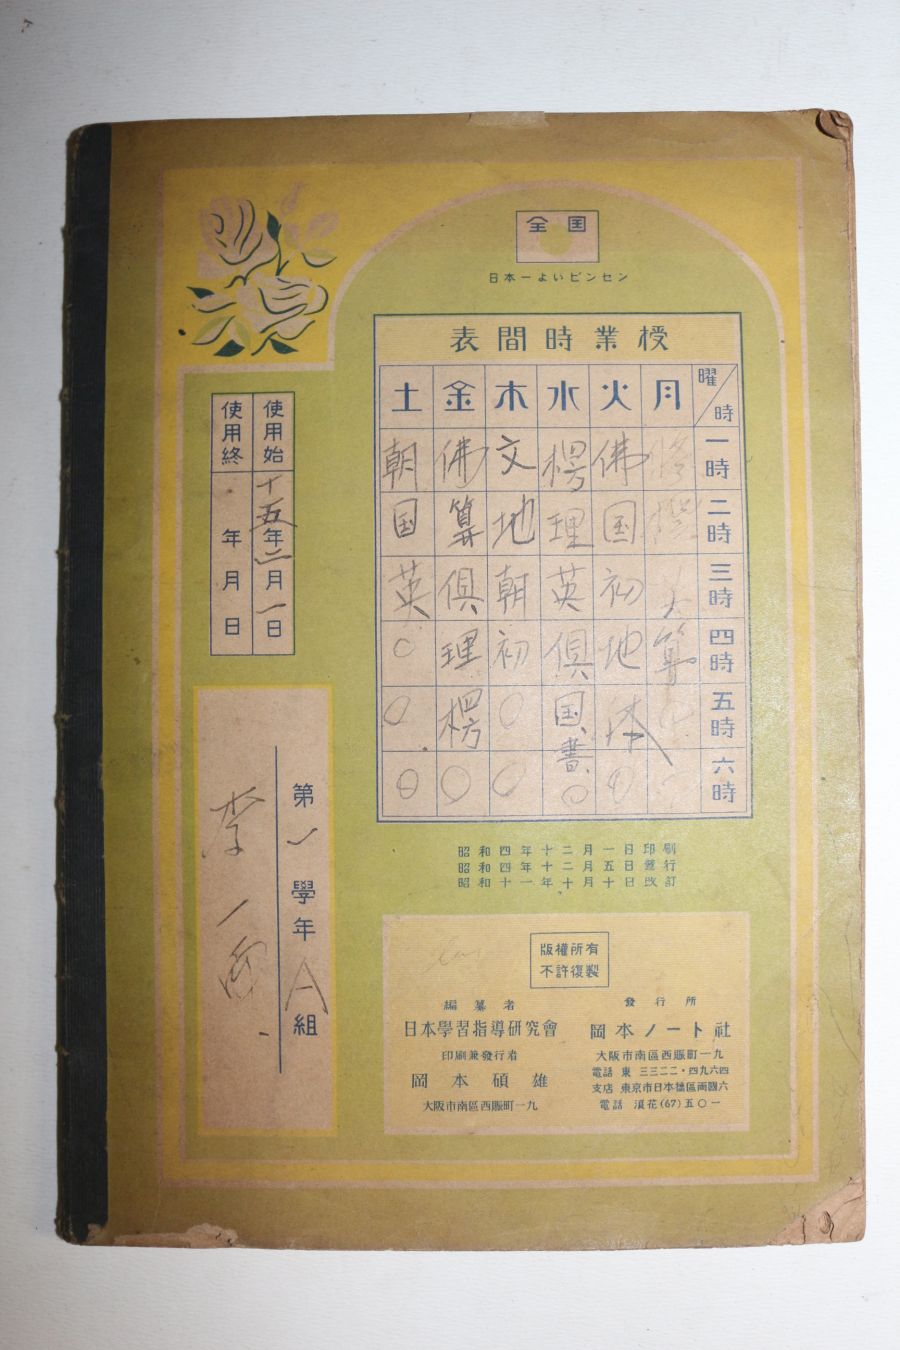 全国
日本一よいビンセン
授業時間表
曜／時 月 火 水 木 金 土
一時 佛 楞 文 佛 朝
二時 国 理 地 算 国
三時 初 英 朝 倶 英
四時 算 地 倶 初 理 ○
五時 体 国、書 ○ 楞 ○
六時 ○ ○ ○ ○ ○
使用始 十五年二月一日
使用終 年 月 日
第一學年A組
李一
昭和四年十二月一日印刷
昭和四年十二月五日發行
昭和十一年十月十日改訂
版權所有
不許復製
編纂者
日本學習指導研究會
印刷兼發行者
岡本碩雄
大阪市南區西賑町一九
發行所
岡本ノート社
大阪市南區西賑町一九
電話 東 三三二二・四九六四
支店 東京市日本橋區兩國六
電話 浪花(67)五〇一